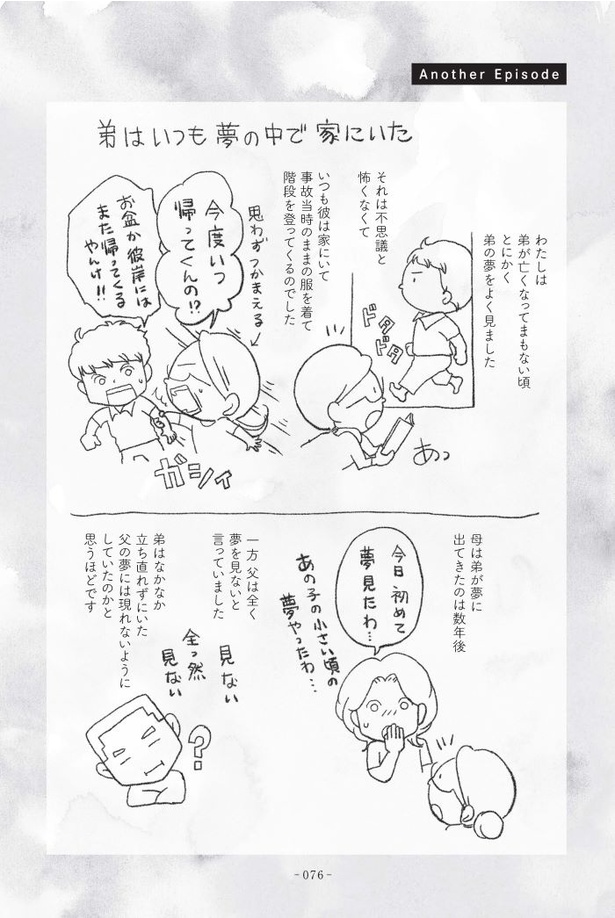 Another Episode
弟はいつも夢の中で家にいた
わたしは
弟が亡くなってまもない頃
とにかく
弟の夢をよく見ました
ドタ
ドタ
あっ
それは不思議と
怖くなくて
いつも彼は家にいて
事故当時のままの服を着て
階段を登ってくるのでした
思わずつかまえる
今度いつ
帰ってくんの!?
お盆か彼岸には
また帰ってくる
やんけ!!
ガシィ
母は弟が夢に
出てきたのは数年後
今日初めて
夢見たわ…
あの子の小さい頃の
夢やったわ…
一方父は全く
夢を見ないと
言っていました
見ない
全っ然
見ない
?
弟はなかなか
立ち直れずにいた
父の夢には現れないように
していたのかと
思うほどです
-076-